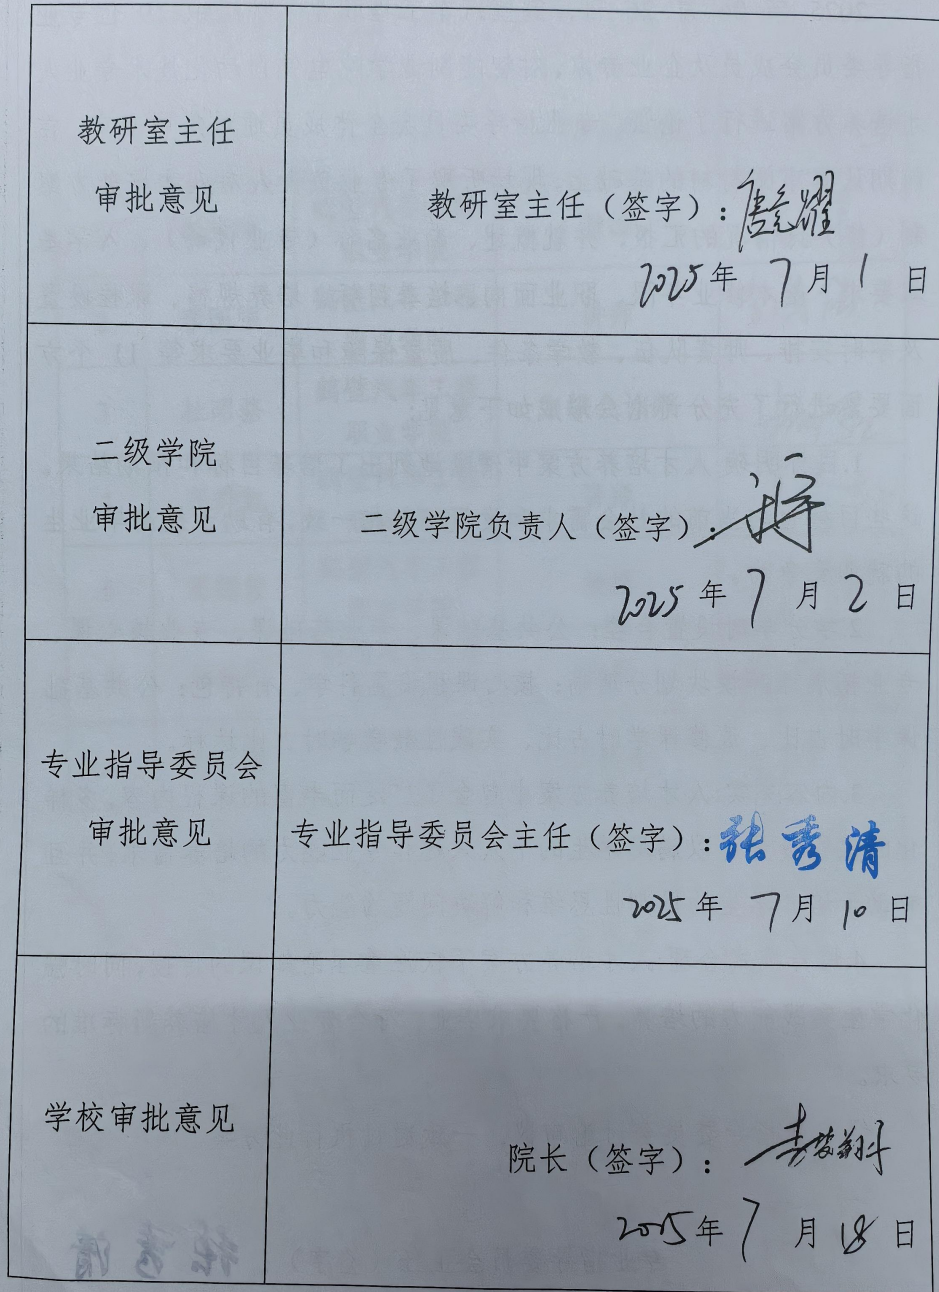 教研室主任
审批意见
教研室主任（签字）：
2025年7月1日
二级学院
审批意见
二级学院负责人（签字）：
2025年7月2日
专业指导委员会
审批意见
专业指导委员会主任（签字）：张秀清
2025年7月10日
学校审批意见
院长（签字）：
2025年7月18日